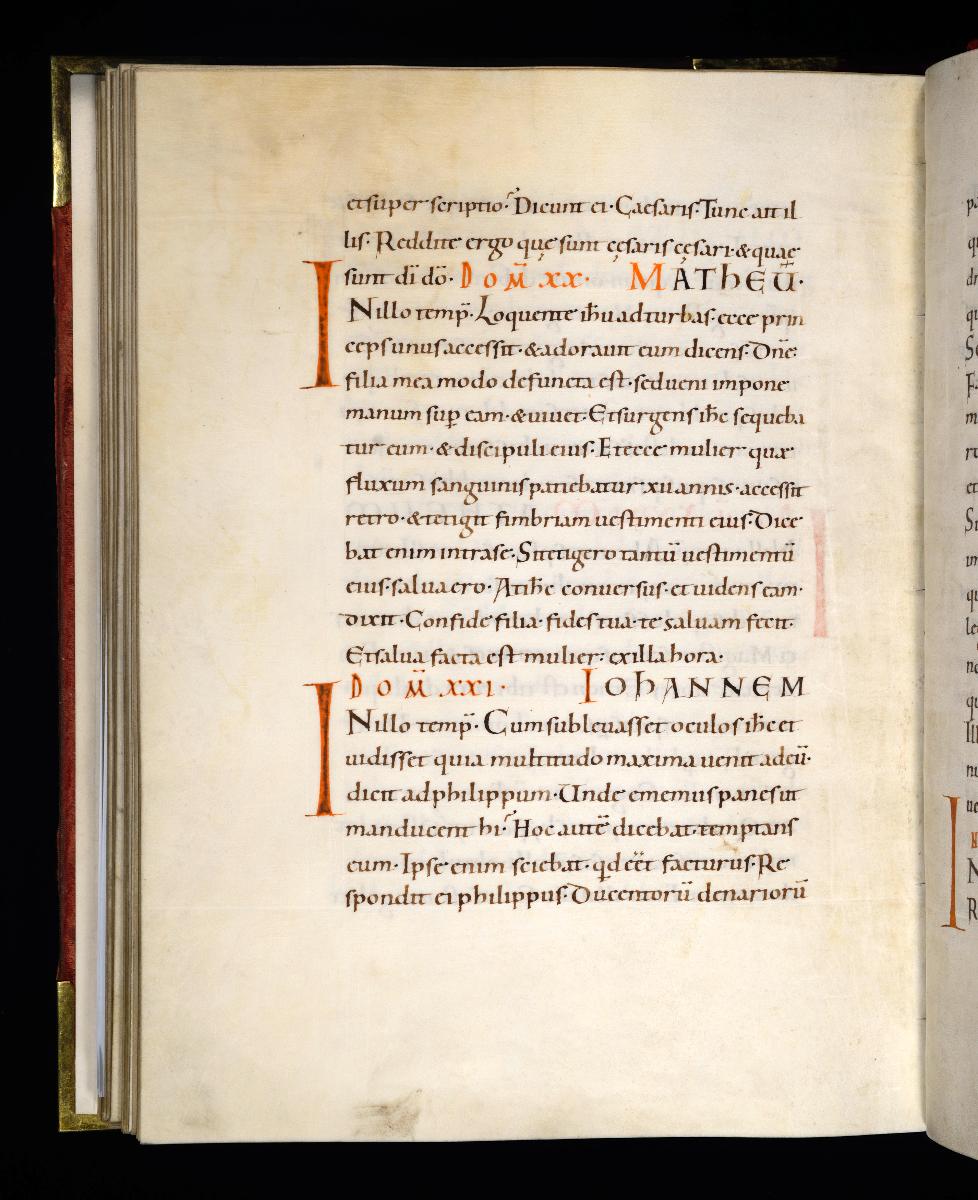 et super scriptio? Dicunt ei· Caesaris· Tunc ait il
lis· Reddite ergo quę sunt cęsaris cęsari· & quae
sunt dī dō· DOM̄ XX· MATHEŪ·
INillo temp̄· Loquente ih̄u ad turbas· ecce prin
ceps unus accessit· & adorauit eum dicens· Dn̄e
filia mea modo defuncta est· sed ueni impone
manum sup̄ eam· & uiuet· Et surgens ih̄c sequeba
tur eum· & discipuli eius· Et ecce mulier quae
fluxum sanguinis patiebatur xii annis· accessit
retro· & tetigit fimbriam uestimenti eius· Dice
bat enim intra se· Si tetigero tantū uestimentū
eius· salua ero· At ih̄c conuersus· et uidens eam·
dixit· Confide filia· fides tua· te saluam fecit·
Et salua facta est mulier· ex illa hora·
DOM̄ XXI· IOHANNEM
INillo temp̄· Cum subleuasset oculos ih̄c et
uidisset quia multitudo maxima uenit ad eū·
dicit ad philippum· Unde ememus panes ut
manducent hi? Hoc autē dicebat· temptans
eum· Ipse enim sciebat· qd eēt facturus· Re
spondit ei philippus· Ducentorū denariorū